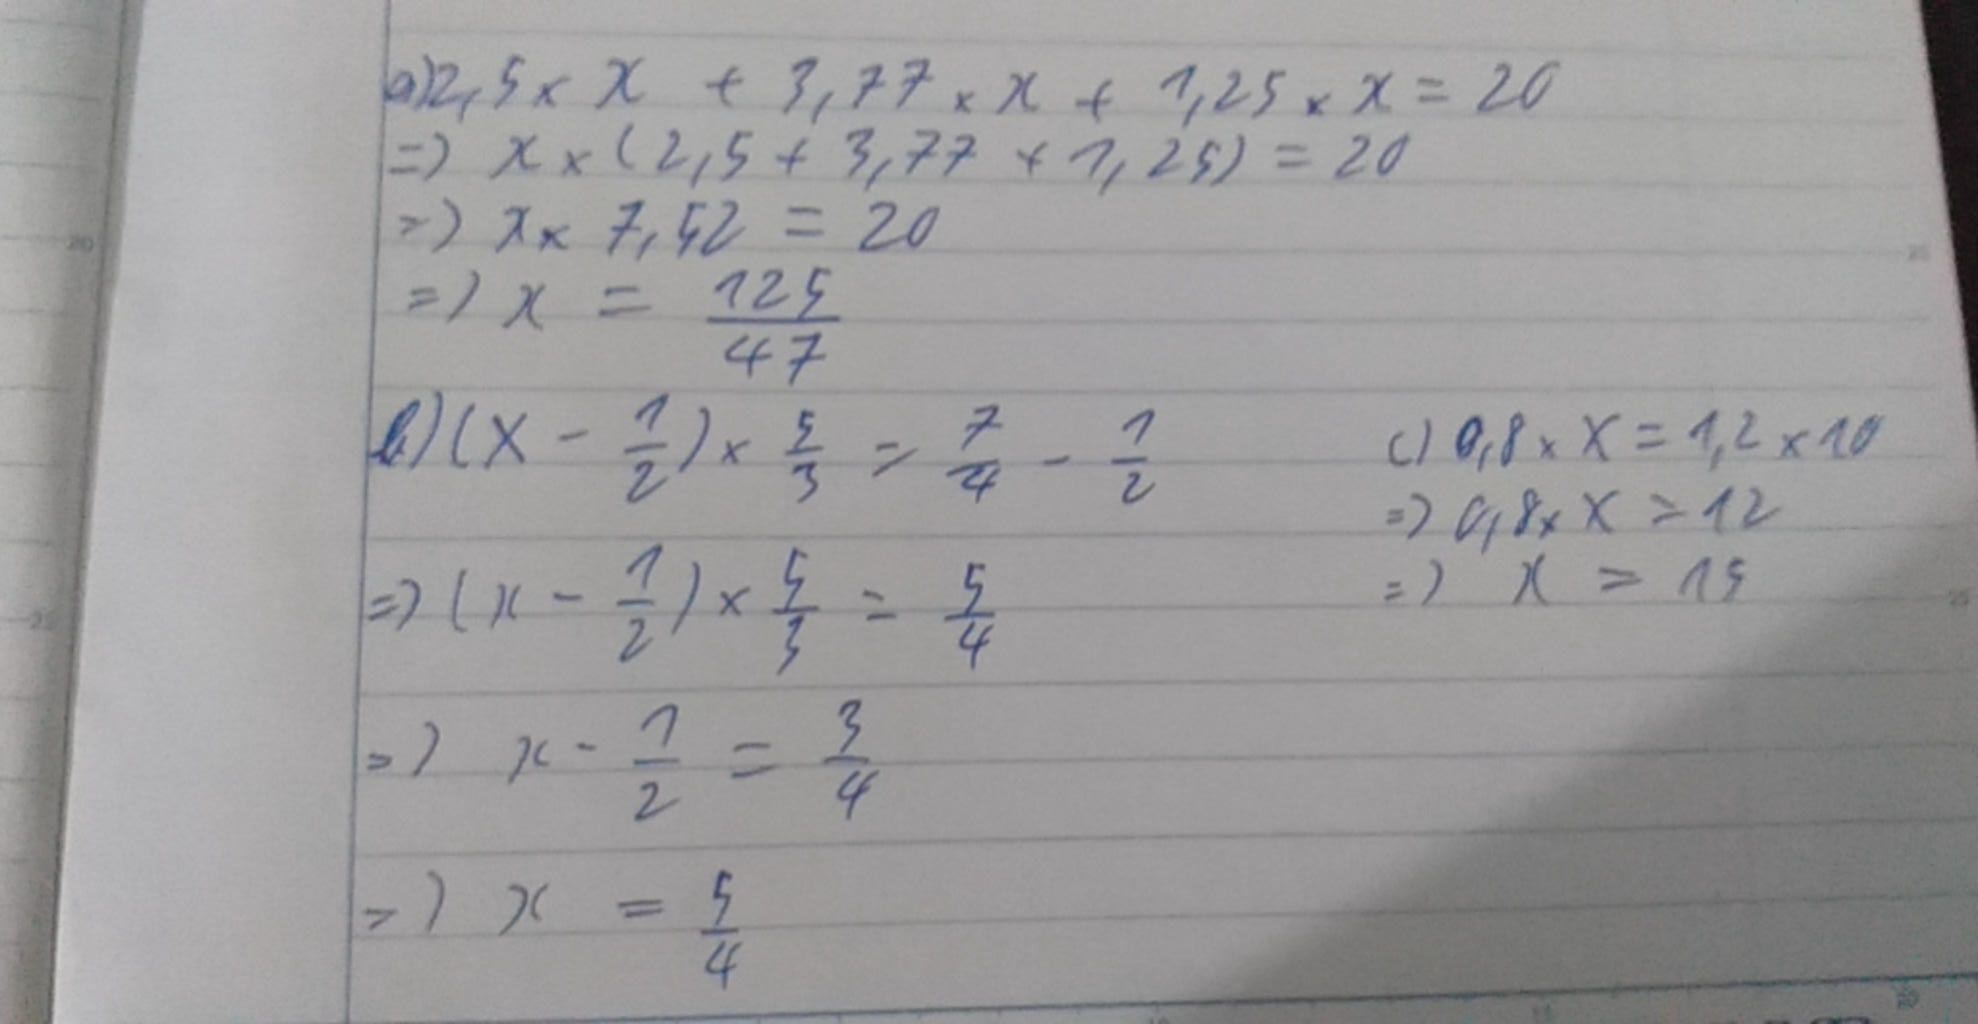 a) 2,5 × x + 3,77 × x + 1,25 × x = 20
=) x × (2,5 + 3,77 + 1,25) = 20
=) x × 7,52 = 20
=) x = 125/47
b) (x - 1/2) × 5/3 = 7/4 - 1/2
=) (x - 1/2) × 5/3 = 5/4
=) x - 1/2 = 3/4
=) x = 5/4
c) 0,8 × x = 1,2 × 10
=) 0,8 × x = 12
=) x = 15